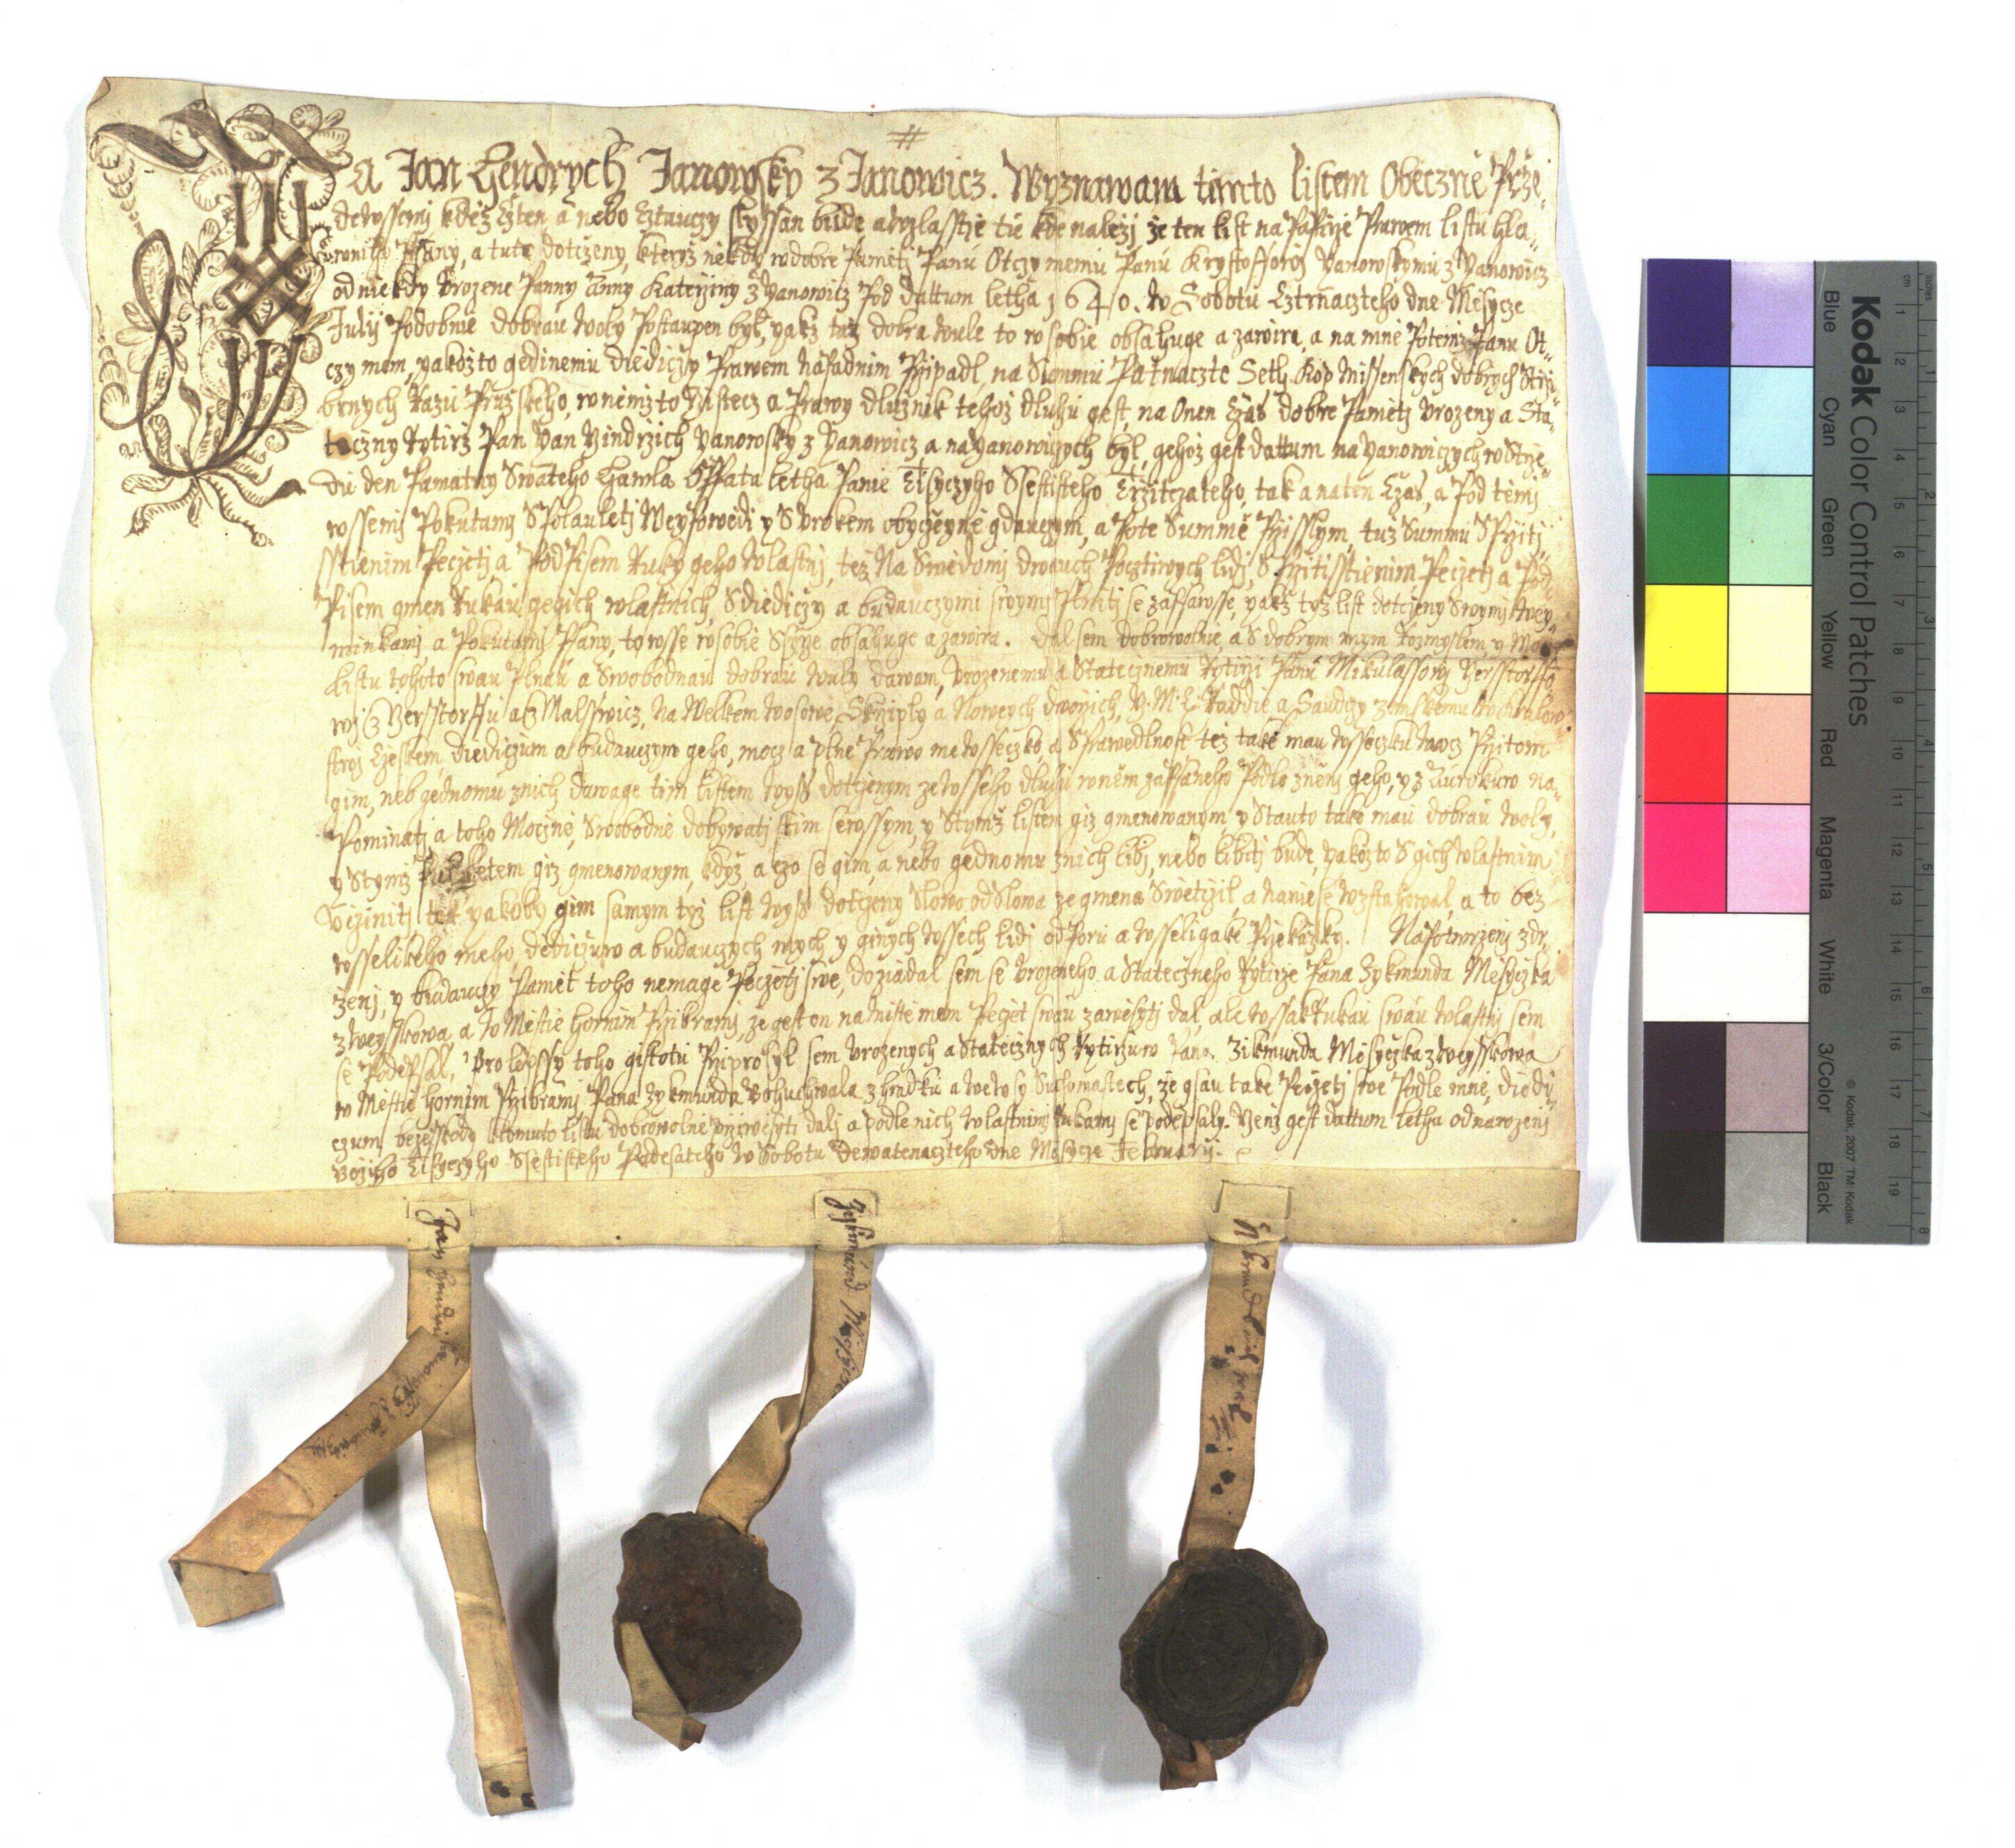 #
Ja Jan Hendrych Janowsky z Janowicz. Wyznawam timto listem Obeczně Prže
dewssemi kdež Czten a nebo Cztauczy slyssan bude a wzlasstie tu kde naležj že ten list na Papirže Prawem listu hla
wniho Psany, a tuto dotczeny, kteryž někdy w dobre Pamětj Panu Otczy memu Panu Krystofforoj Yanowskymu z Yanowicz
od niekdy Urozene Panny Anny Kateržiny z Yanowicz Pod dattum letha 1640. w Sobotu Cztrnaczteho dne Měsycze
Julij Podobnie dobrau woly Postaupen byl, yakž taž dobra wule to w sobie obsahuge a zawira, a na mne Potomž Panu Ot
czy mem, yakožto gedinemu diediczy Prawem napadnim Pržipadl, na Summu Patnaczte Seth Kop Missenskych dobrych Strži
brnych Razu Pražskeho, w němžto Gistecz a Prawy dlužnik tehož dluhu gest, na Onen Czas dobre Pamětj Urozeny a Sta
teczny Rytirž Pan Yan Yindržich Yanowsky z Yanowicz a na Yanowiczych byl, gehož gest dattum na Yanowiczych w Strže
du den Pamatny Swateho Hawla Oppata letha Panie Tisyczyho Ssestisteho Tržitczateho, tak a na ten Czas, a Pod těmi
wssemi Pokutami S Polauletj Weypowědi y S Urokem obyczegně gdauczym, a Pote Summě Prżisslym, tuž Summu S Pržiti
sstienim Peczetj a Podpisem Ruky geho wlastnj, tež Na Swědomj dwauch Pocztiwych lidj, S Pržitisstienim Peczetj a Pod
Pisem gmen Rukau gegich wlastnich, S diediczy a budauczymi swymi Platitj se zapsawsse, yakž tyž list dotczeny Swymi Wey
minkami a Pokutami Psany, to wsse w sobie Ssyrže obsahuge a zawira. Dal sem dobrowolnie, a S dobrym mym Rozmyslem, y Mocz
Listu tohoto swau Plnau a Swobodnau dobrau wuly dawam, Urozenemu a Statecznemu Rytirži Panu Mikulassowi Gersstorffo
wi z Gersstorffu a z Malsswicz, na Welkem Wosowe, Skržiply a Nowych dworžich, G. M. C. Raddie a Saudczy zemskemu w Kralow
stwj Czeskem, diediczum a budauczym geho, mocz a plne Prawo me wsseczko, a Sprawedlnost tež take mau wsseczku mocz Pržitom
gim, neb gednomu z nich dawage tim listem wyss dotczenym ze wsseho dluhu w něm zapsaneho Podle zněni geho, y z Aurokuw na
Pominatj, a toho Možně, Swobodně dobywatj s tim se wssym, y S tymž listem giž gmenowanym y S tauto take mau dobrau woly,
y S tymž [...] giž gmenowanym, když a czo se gim, a nebo gednomu z nich libj, nebo libitj bude, yakožto S gich wlastnim
Ucžinitj, tak yakoby gim samym tyž list wyss dotczeny Slowo od Slowa ze gmena Swětczil a na nie se wztahowal, a to bez
wsselikeho meho, dědiczuw a budauczych mych y ginych wssech lidj odporu a wsseligake Pržekažky. Na Potwrzenj zdr
ženj, y budauczy Pamět toho nemage Peczetj swe, dožadal sem se Urozeneho a Stateczneho Rytirže Pana Zykmunda Měsyczka
z Weysskowa, a w Městie Hornim Pržibrami, že gest on na mistě mem Peczet swau zawěsytj dal, ale wssak Rukau swau wlastnj sem
se Podepsal. Pro lepssy toho gistotu Pržiprosyl sem Urozenych a Statecznych Rytiržuw Pana Zikmunda Měsyczka z Weysskowa
w Městie Hornim Pržibrami, Pana Zykmunda Bohuchwala z Hradku a we wsy Suchomastech, že gsau take Peczetj swe Podle mně, diedi
czum bez sskody k tomuto listu dobrowolnie Pržiwěsyti dalj a podle nich wlastnimi Rukami se podepsaly. Genž gest dattum letha od narozenj
Božiho Tisyczyho Ssestisteho Padesateho w Sobotu Dewatenaczteho dne Měsycze Februarij.
Jan Hendrich Janowsky z Janowicz
Zykmund Měsyczek
Kodak Color Control Patches
Blue Cyan Green Yellow Red Magenta White 3/Color Black
© Kodak, 2007 TM: Kodak
cm 1 2 3 4 5 6 7 8 9 10 11 12 13 14 15 16 17 18 19
inches 1 2 3 4 5 6 7 8